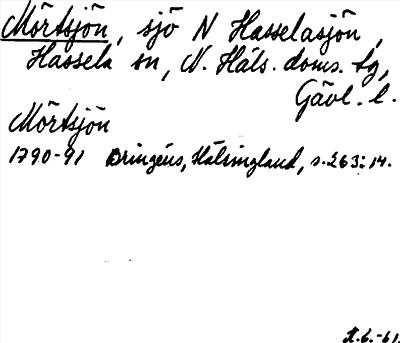 Mörtsjön, sjö N Hasselasjön,
Hassela sn, N. Häls. doms. tg,
Gävl. l.
Mörtsjön
1790-91 Bringéus, Hälsingland, s. 263: 14.